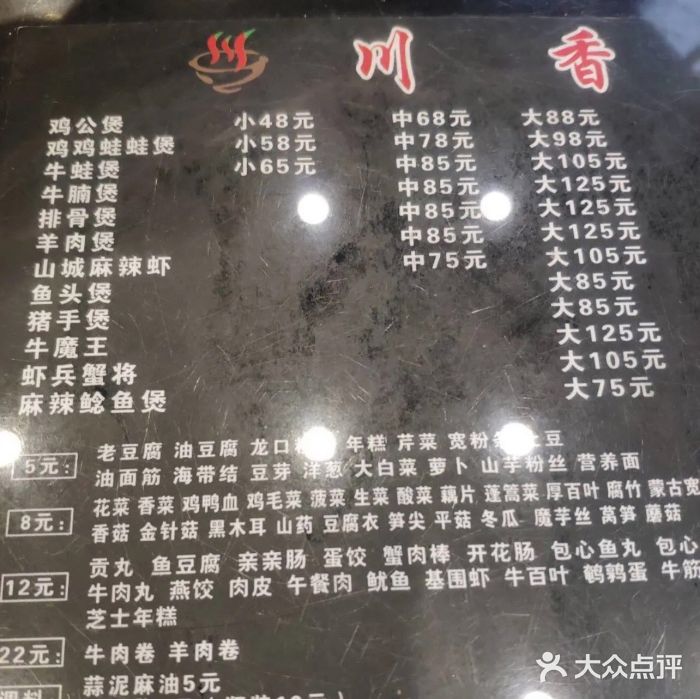 川香
鸡公煲 小48元 中68元 大88元
鸡鸡蛙蛙煲 小58元 中78元 大98元
牛蛙煲 小65元 中85元 大105元
牛腩煲 中85元 大125元
排骨煲 中85元 大125元
羊肉煲 中85元 大125元
山城麻辣虾 中75元 大105元
鱼头煲 大85元
猪手煲 大85元
牛魔王 大125元
虾兵蟹将 大105元
麻辣鲶鱼煲 大75元
老豆腐 油豆腐 龙口 年糕 芹菜 宽粉 土豆
5元: 油面筋 海带结 豆芽 洋葱 大白菜 萝卜 山芋粉丝 营养面
花菜 香菜 鸡鸭血 鸡毛菜 菠菜 生菜 酸菜 藕片 蓬蒿菜 厚百叶 腐竹 蒙古宽
8元: 香菇 金针菇 黑木耳 山药 豆腐衣 笋尖 平菇 冬瓜 魔芋丝 莴笋 蘑菇
贡丸 鱼豆腐 亲亲肠 蛋饺 蟹肉棒 开花肠 包心鱼丸 包心
12元: 牛肉丸 燕饺 肉皮 午餐肉 鱿鱼 基围虾 牛百叶 鹌鹑蛋 牛筋
芝士年糕
22元: 牛肉卷 羊肉卷
蒜泥麻油5元
大众点评